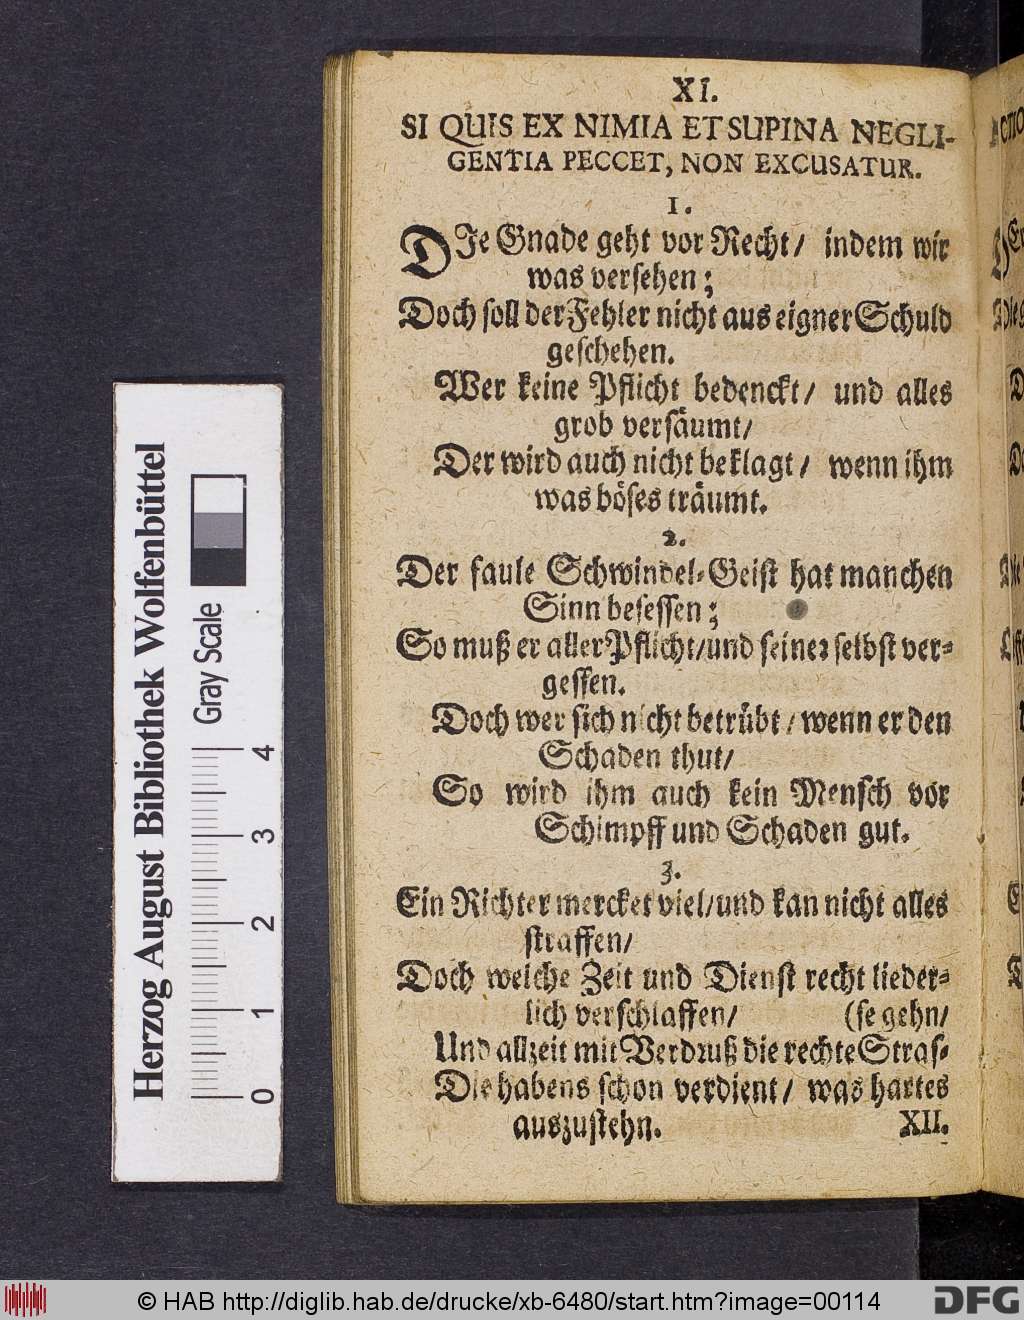 XI.
SI QUIS EX NIMIA ET SUPINA NEGLI-
GENTIA PECCET, NON EXCUSATUR.
1.
DIe Gnade geht vor Recht/ indem wir
was versehen;
Doch soll der Fehler nicht aus eigner Schuld
geschehen.
Wer keine Pflicht bedenckt/ und alles
grob versäumt/
Der wird auch nicht beklagt/ wenn ihm
was böses träumt.
2.
Der faule Schwindel-Geist hat manchen
Sinn besessen;
So muß er aller Pflicht/und seiner selbst ver-
gessen.
Doch wer sich nicht betrübt/wenn er den
Schaden thut/
So wird ihm auch kein Mensch vor
Schimpff und Schaden gut.
3.
Ein Richter mercket viel/und kan nicht alles
straffen/
Doch welche Zeit und Dienst recht lieder-
lich verschlaffen/ (se gehn/
Und allzeit mit Verdruß die rechte Stras-
Die habens schon verdient/ was hartes
auszustehn. XII.
Herzog August Bibliothek Wolfenbüttel
Gray Scale
0 1 2 3 4
© HAB http://diglib.hab.de/drucke/xb-6480/start.htm?image=00114
DFG